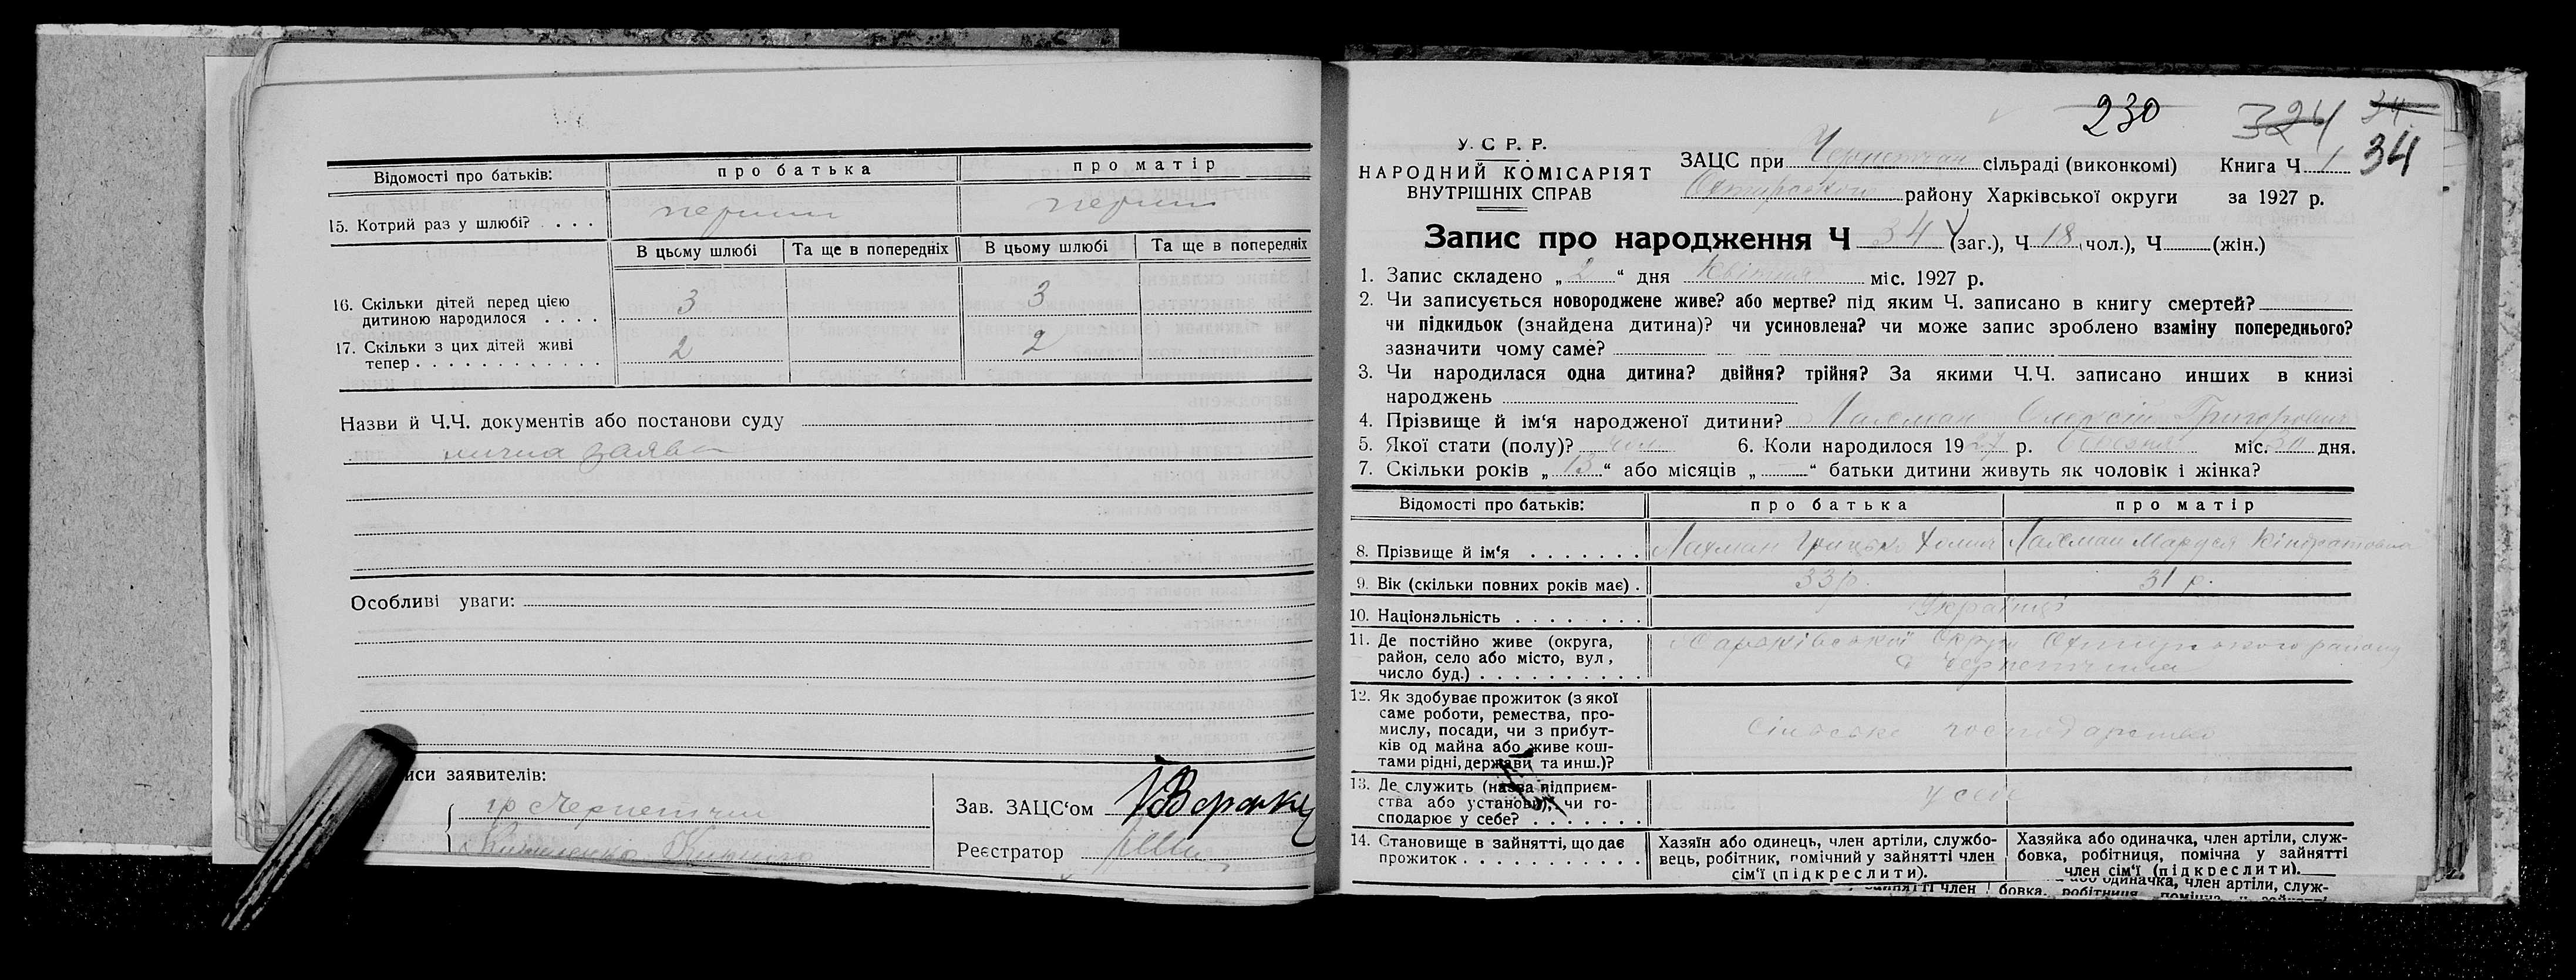 Відомості про батьків: про батька про матір
15. Котрий раз у шлюбі? . . . . перший перший
В цьому шлюбі Та ще в попередніх В цьому шлюбі Та ще в попередніх
16. Скільки дітей перед цією
дитиною народилося . . . . 3 3
17. Скільки з цих дітей живі
тепер . . . . . . . . . . . . . 2 2
Назви й Ч.Ч. документів або постанови суду
лична заява
Особливі уваги:
иси заявителів:
гр с Чернетчин
Зав. ЗАЦС‘ом
Реєстратор
230 324 34
У. С Р. Р.
НАРОДНИЙ КОМІСАРІЯТ
ВНУТРІШНІХ СПРАВ
ЗАЦС при Чернетчан сільраді (виконкомі) Книга Ч 1 34
Охтирського району Харківської округи за 1927 р.
Запис про народження Ч 34 (заг.), Ч 18 (чол.), Ч (жін.)
1. Запис складено „ 2 “ дня Квітня міс. 1927 р.
2. Чи записується новороджене живе? або мертве? під яким Ч. записано в книгу смертей?
чи підкидьок (знайдена дитина)? чи усиновлена? чи може запис зроблено взаміну попереднього?
зазначити чому саме?
3. Чи народилася одна дитина? двійня? трійня? За якими Ч.Ч. записано инших в книзі
народжень
4. Прізвище й ім‘я народженої дитини? Лахман Олексій Григорович
5. Якої стати (полу)? чол 6. Коли народилося 1927 р. березня міс. 30 дня.
7. Скільки років „ 13 “ або місяців „ — “ батьки дитини живуть як чоловік і жінка?
Відомості про батьків: про батька про матір
8. Прізвище й ім‘я . . . . . . . Лахман Грицько Хомич Лахман Маруся Кіндратовна
9. Вік (скільки повних років має) . 33 р. 31 р.
10. Національність . . . . . . . . Українці
11. Де постійно живе (округа,
район, село або місто, вул,
число буд.) . . . . . . . . . . Харківської Округи Охтирського району
с Чернетчина
12. Як здобуває прожиток (з якої
саме роботи, ремества, про-
мислу, посади, чи з прибут-
ків од майна або живе кош-
тами рідні, держави та инш.)? Сільське господарство
13. Де служить (назва підприєм-
ства або установи), чи го-
сподарює у себе? . . . . . . . у себе
14. Становище в зайнятті, що дає
прожиток . . . . . . . . . . .
Хазяїн або одинець, член артіли, службо-
вець, робітник, помічний у зайнятті член
сім‘ї (підкреслити).
Хазяйка або одиначка, член артіли, служ-
бовка, робітниця, помічна у зайнятті
член сім‘ї (підкреслити).
або одиначка, член артіли, служ-
зайнятті член бовка, робітниця, помічна у зайнятті